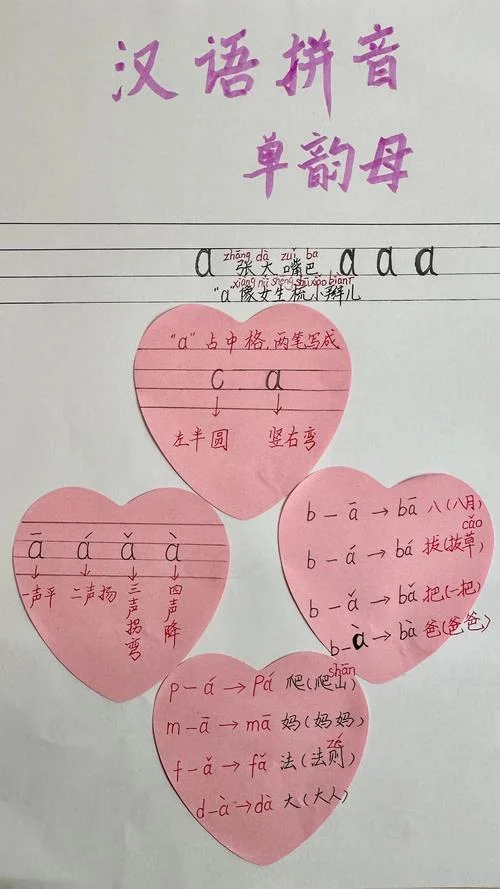 汉语拼音
单韵母
zhāng dà zuǐ ba
a 张大嘴巴 a a a
xiàng nǚ shēng shū xiǎo biànr
"a"像女生梳小辫儿
"a"占中格,两笔写成
c a
↓ ↓
左半圆 竖右弯
ā á ǎ à
↓ ↓ ↓ ↓
一声平 二声扬 三声拐弯 四声降
b - ā → bā 八(八月)
cǎo
b - á → bá 拔(拔草)
b - ǎ → bǎ 把(一把)
b - à → bà 爸(爸爸)
shān
p - á → pá 爬(爬山)
m - ā → mā 妈(妈妈)
zé
f - ǎ → fǎ 法(法则)
d - à → dà 大(大人)